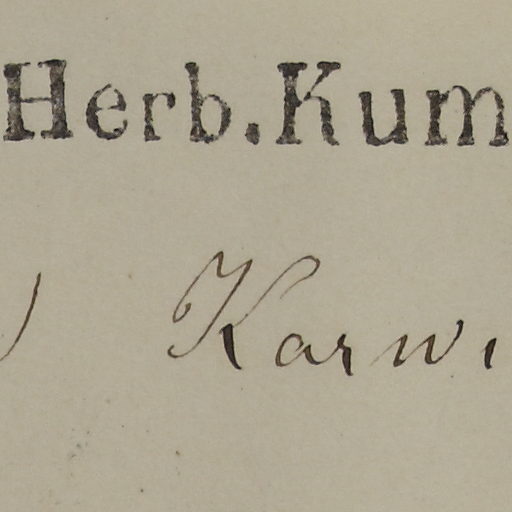 Herb. Kum
) Karwi